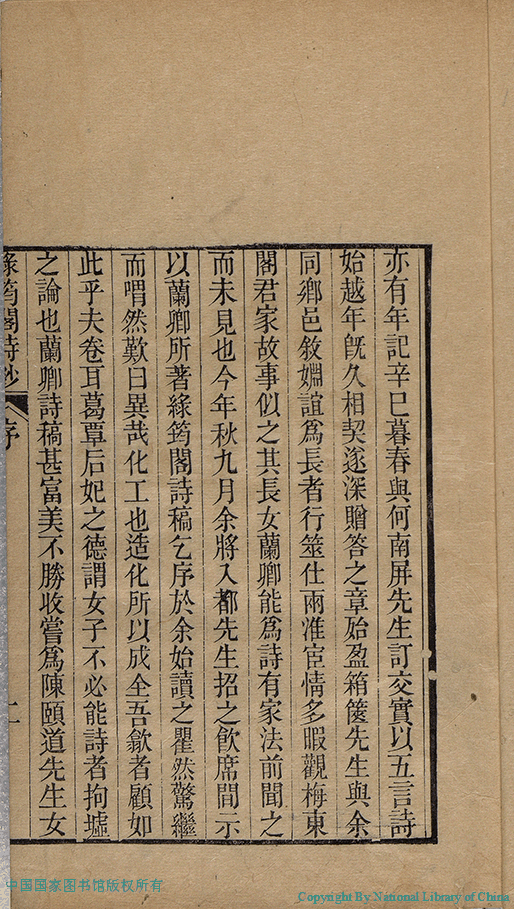 亦有年記辛巳暮春與何南屏先生訂交實以五言詩
始越年旣久相契逐深贈答之章始盈箱篋先生與余
同鄉邑敘婣誼爲長者行筮仕兩淮宦情多暇觀梅東
閣君家故事似之其長女蘭卿能爲詩有家法前聞之
而未見也今年秋九月余將入都先生招之飮席間示
以蘭卿所著綠筠閣詩稿乞序於余始讀之瞿然驚繼
而喟然歎曰異哉化工也造化所以成全吾歙者顧如
此乎夫卷耳葛覃后妃之德謂女子不必能詩者拘墟
之論也蘭卿詩稿甚富美不勝收嘗爲陳頤道先生女
綠筠閣詩鈔 序 二
中国国家图书馆版权所有
Copyright By National Library of China